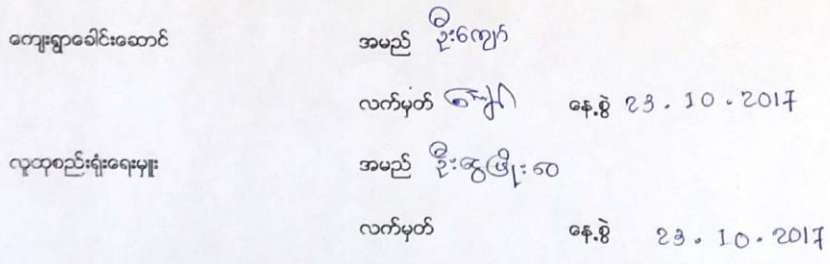 ကျေးရွာခေါင်းဆောင် အမည် ဦးကျော်
လက်မှတ် ကျော် နေ့စွဲ 23.10.2017
လူထုစည်းရုံးရေးမှူး အမည်
လက်မှတ် နေ့စွဲ 23.10.2017